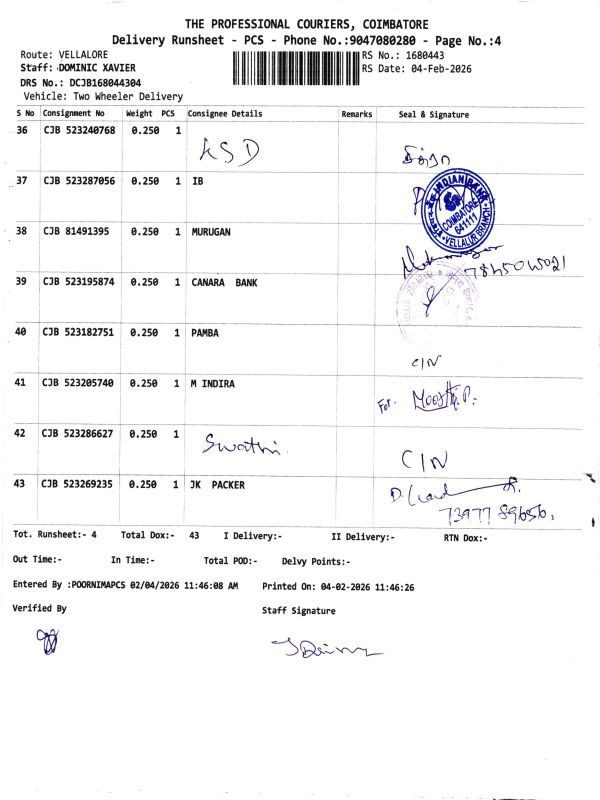 THE PROFESSIONAL COURIERS, COIMBATORE
Delivery Runsheet - PCS - Phone No.:9047080280 - Page No.:4
Route: VELLALORE
RS No.: 1680443
Staff: DOMINIC XAVIER
RS Date: 04-Feb-2026
DRS No.: DCJB168044304
Vehicle: Two Wheeler Delivery
S No Consignment No Weight PCS Consignee Details Remarks Seal & Signature
36 CJB 523240768 0.250 1
KSD
37 CJB 523287056 0.250 1 IB
INDIAN BANK
COIMBATORE
641111
VELLALUR BRANCH
38 CJB 81491395 0.250 1 MURUGAN
39 CJB 523195874 0.250 1 CANARA BANK
40 CJB 523182751 0.250 1 PAMBA
C/N
41 CJB 523205740 0.250 1 M INDIRA
For.
42 CJB 523286627 0.250 1
Swathi
C/N
43 CJB 523269235 0.250 1 JK PACKER
73977 89656.
Tot. Runsheet:- 4 Total Dox:- 43 I Delivery:- II Delivery:- RTN Dox:-
Out Time:- In Time:- Total POD:- Delvy Points:-
Entered By :POORNIMAPCS 02/04/2026 11:46:08 AM Printed On: 04-02-2026 11:46:26
Verified By Staff Signature